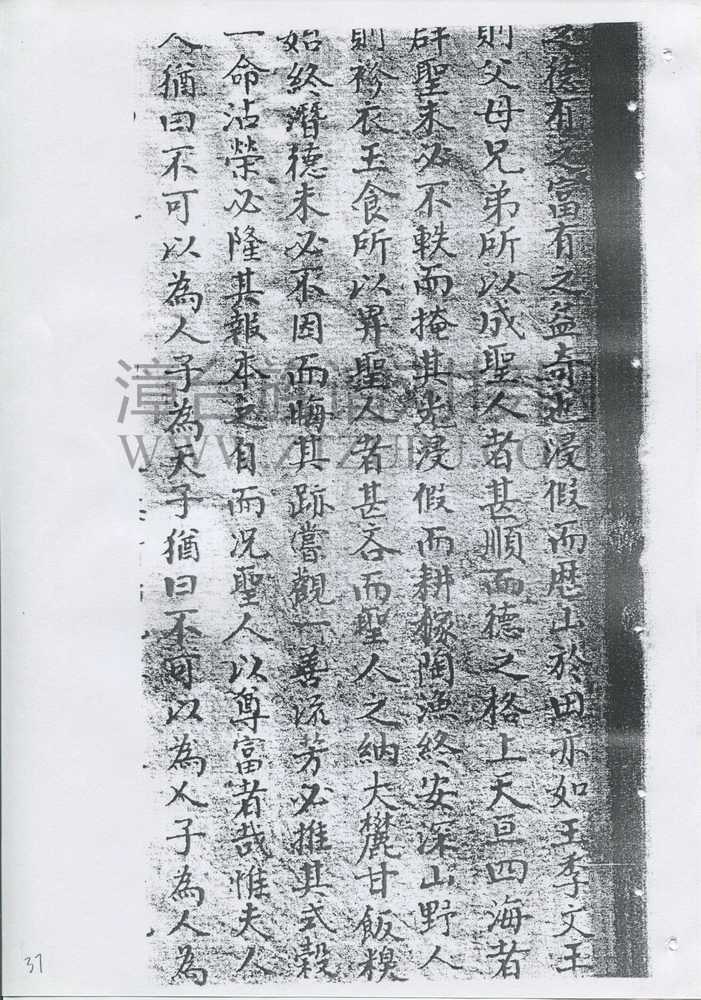 之德有之富有之益奇也浸假而歴山於田亦如王季文王
則父母兄弟所以成聖人者甚順而德之格上天亘四海者
辟聖未必不軼而掩其光浸假而耕稼陶漁終安深山野人
則袗衣玉食所以畀聖人者甚吝而聖人之納大麓甘飯糗
始終潛德未必不因而晦其跡嘗觀一善流芳必推其式榖
一命沾榮必隆其報本之自而况聖人以尊富者哉惟夫人
人猶曰不可以為人子為天子猶曰不可以為人子為人為
WWW.ZTZUPU.COM
37